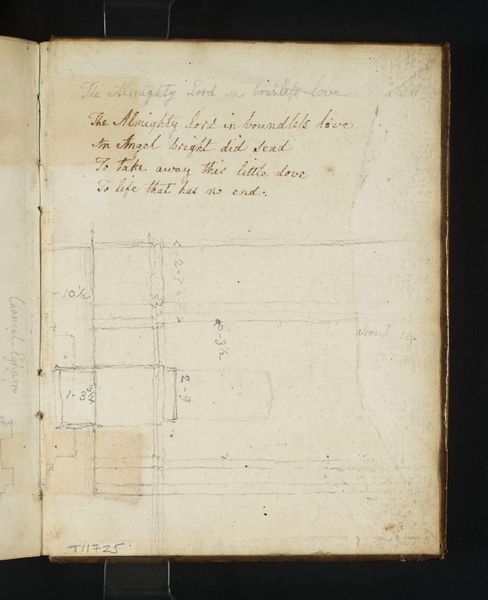 The Almighty Lord in bounless love
The Almighty Lord in boundless love
An Angel bright did send
To take away this little dove
To life that has no end.
2-9
10½
6-3½
about 14
1-8¾
2-9
Chancel Egham
T11725